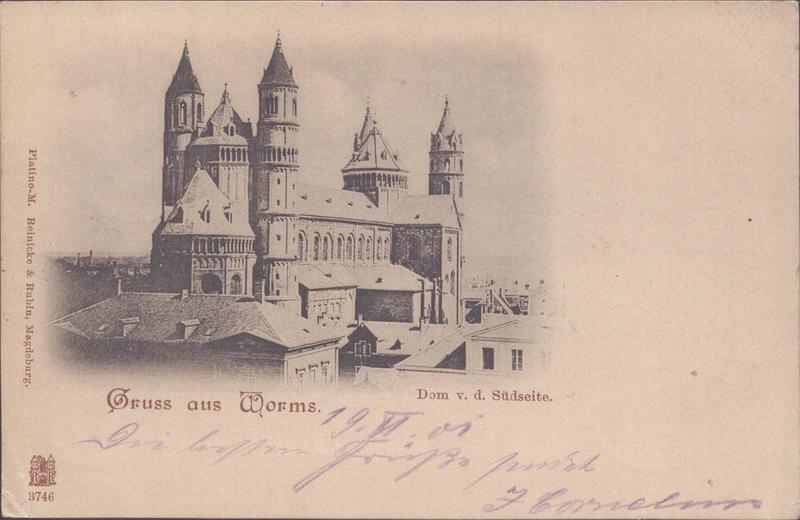 Platino-M. Reinicke & Rubin, Magdeburg.
Gruss aus Worms.
Dom v. d. Südseite.
19. VI. 01
Die besten Grüße sendet
J Cornelius
3746